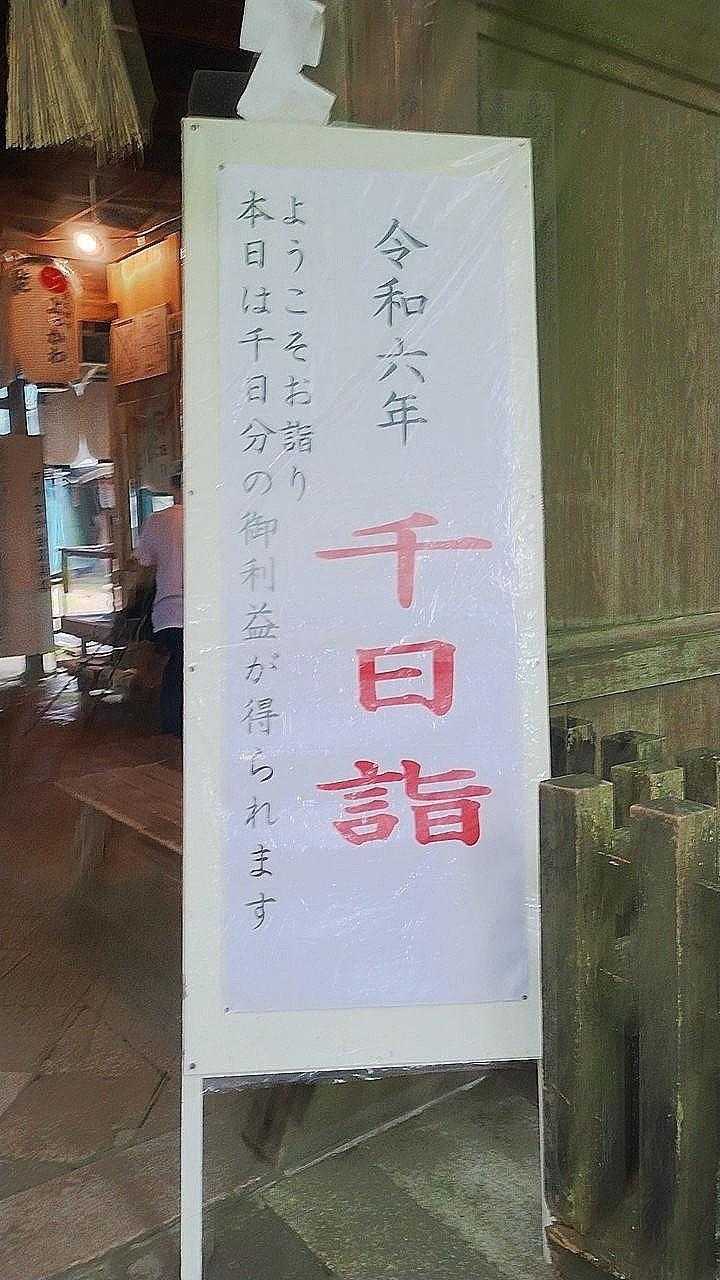 令和六年 千日詣
ようこそお詣り
本日は千日分の御利益が得られます